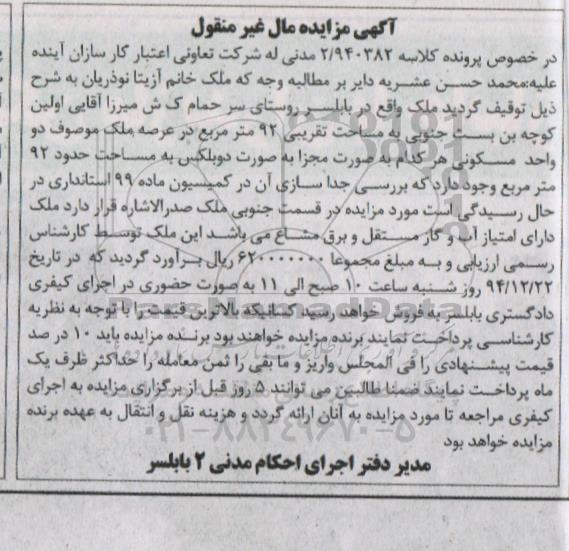 آگهی مزایده مال غیر منقول
در خصوص پرونده کلاسه ۲/۹۴۰۳۸۲ مدنی له شرکت تعاونی اعتبار کار سازان آینده
علیه:محمد حسن عشریه دایر بر مطالبه وجه که ملک خانم آزیتا نوذریان به شرح
ذیل توقیف گردید ملک واقع در بابلسر روستای سر حمام ک ش میرزا آقایی اولین
کوچه بن بست جنوبی به مساحت تقریبی ۹۲ متر مربع در عرصه ملک موصوف دو
واحد مسکونی هر کدام به صورت مجزا به صورت دوبلکس به مساحت حدود ۹۲
متر مربع وجود دارد که بررسی جدا سازی آن در کمیسیون ماده ۹۹ استانداری در
حال رسیدگی است مورد مزایده در قسمت جنوبی ملک صدرالاشاره قرار دارد ملک
دارای امتیاز آب و گاز مستقل و برق مشاع می باشد این ملک توسط کارشناس
رسمی ارزیابی و به مبلغ مجموعا ۶۲۰۰۰۰۰۰۰ ریال برآورد گردید که در تاریخ
۹۴/۱۲/۲۲ روز شنبه ساعت ۱۰ صبح الی ۱۱ به صورت حضوری در اجرای کیفری
دادگستری بابلسر به فروش خواهد رسید کسانیکه بالاترین قیمت را با توجه به نظریه
کارشناسی پرداخت نمایند برنده مزایده خواهند بود برنده مزایده باید ۱۰ در صد
قیمت پیشنهادی را فی المجلس واریز و ما بقی را ثمن معامله را حداکثر ظرف یک
ماه پرداخت نمایند ضمنا طالبین می توانند ۵ روز قبل از برگزاری مزایده به اجرای
کیفری مراجعه تا مورد مزایده به آنان ارائه گردد و هزینه نقل و انتقال به عهده برنده
مزایده خواهد بود
مدیر دفتر اجرای احکام مدنی ۲ بابلسر
ParsNamadData
۰۲۱-۸۸۳۴۹۶۷۰-۵